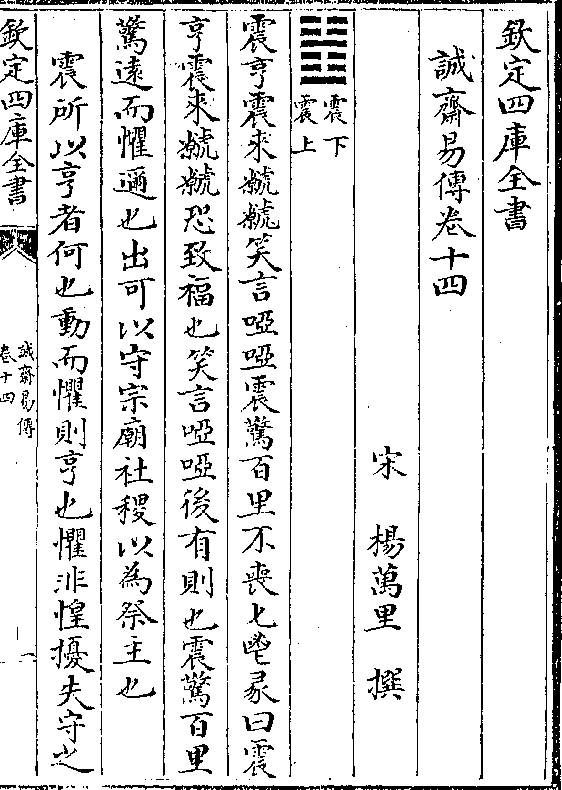 欽定四庫全書
誠齋易傳卷十四
宋 楊萬里 撰
震下
震上
震亨震來虩虩笑言啞啞震驚百里不喪匕鬯彖曰震
亨震來虩虩恐致福也笑言啞啞後有則也震驚百里
驚遠而懼邇也出可以守宗廟社稷以為祭主也
震所以亨者何也動而懼則亨也懼非惶擾失守之
欽定四庫全書
誠齋易傳
卷十四
一